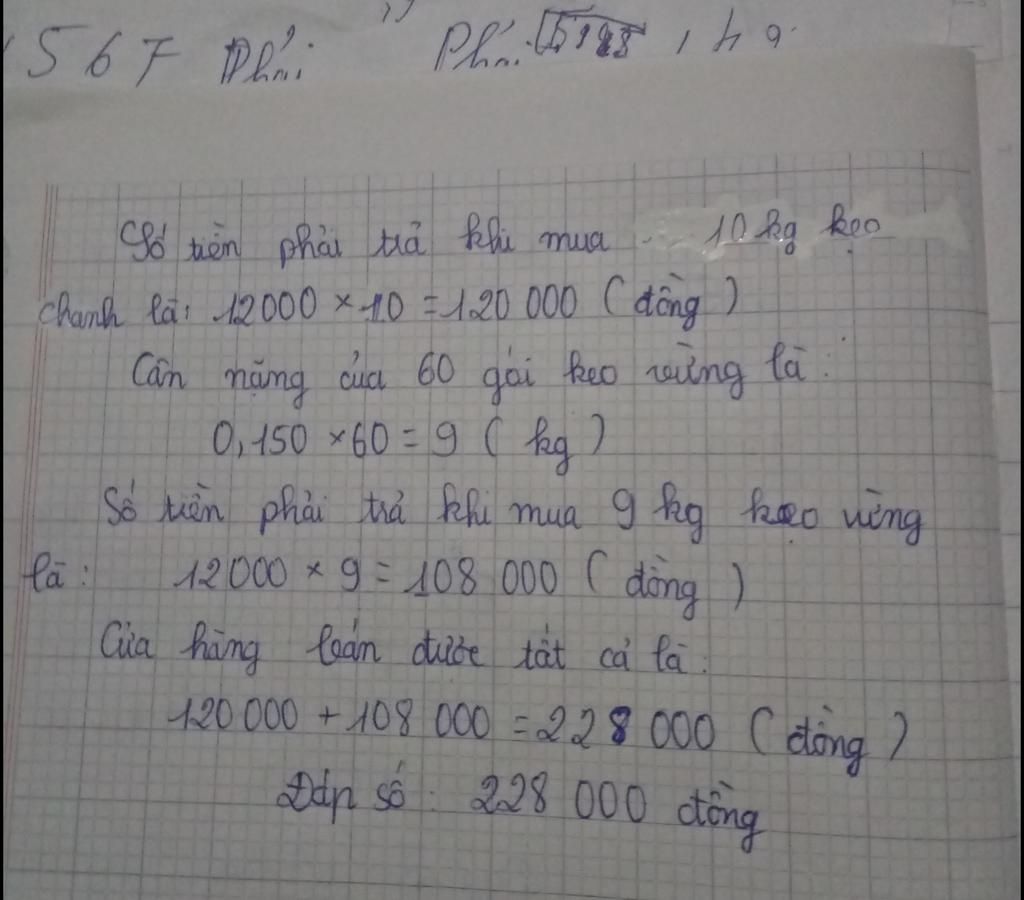 567 Phải Phải
Số tiền phải trả khi mua 10 kg kẹo
chanh là: 12000 × 10 = 120 000 (đồng)
Cân nặng của 60 gói kẹo vừng là:
0,150 × 60 = 9 (kg)
Số tiền phải trả khi mua 9 kg kẹo vừng
là: 12000 × 9 = 108 000 (đồng)
Cửa hàng bán được tất cả là:
120 000 + 108 000 = 228 000 (đồng)
Đáp số: 228 000 đồng